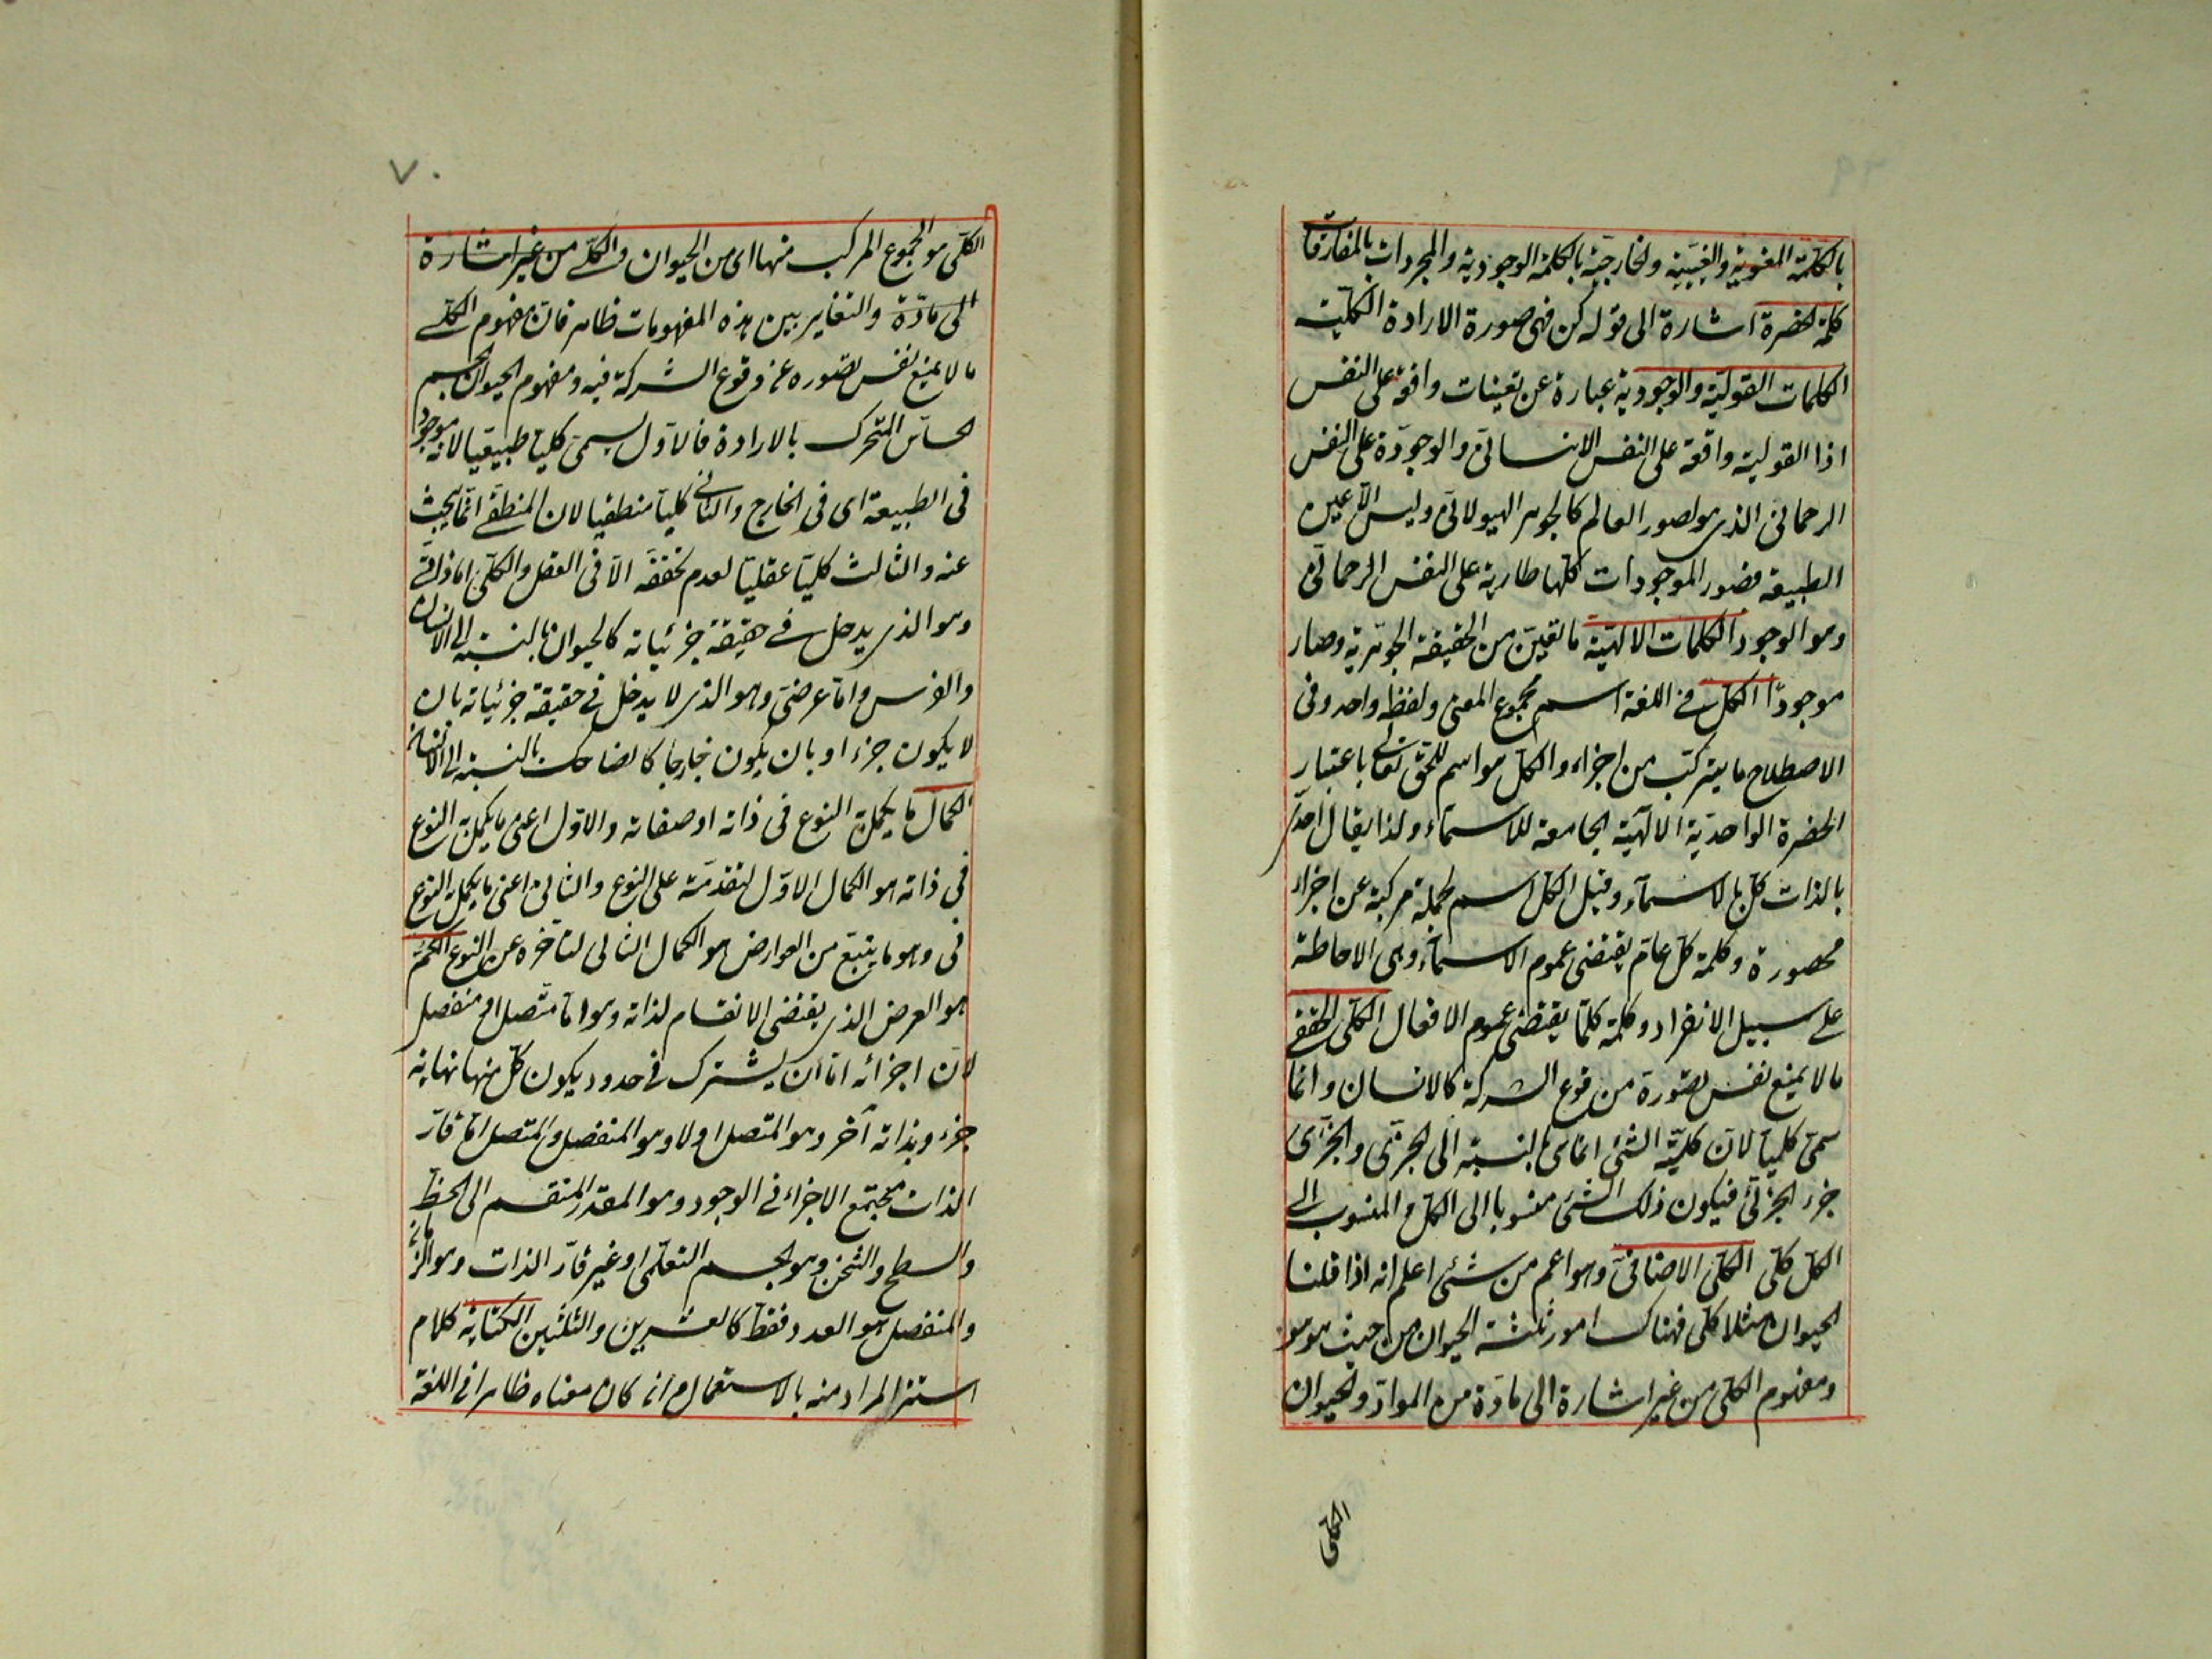 بالكلمة المعنوية والغيبية والخارجية بالكلمة الوجودية والمجردات بالمفارقات
كلمة الحضرة اشارة الى قوله كن فهى صورة الارادة الكلية
الكلمات القولية والوجودية عبارة عن تعينات واقعة على النفس
اذ القولية واقعة على النفس الانسانى والوجودية على النفس
الرحمانى الذى هو لصور العالم كالجوهر الهيولانى وليس الا عين
الطبيعة فصور الموجودات كلها طارية على النفس الرحمانى
وهو الوجود الكلمات الالهية ما تعين من الحقيقة الجوهرية وصار
موجودا الكل فى اللغة اسم مجموع المعنى ولفظه واحد وفى
الاصطلاح ما يتركب من اجزاء والكل هو اسم للحق تعالى باعتبار
الحضرة الواحدية الالهية الجامعة للاسماء ولذا يقال احد
بالذات كل بالاسماء وقيل الكل اسم لجملة مركبة عن اجزاء
محصورة وكلمة كل عام يقتضى عموم الاسماء وهى الاحاطة
على سبيل الانفراد وكلمة كلما يقتضى عموم الافعال الكلى الحقيقى
ما لا يمنع نفس تصوره من وقوع الشركة كالانسان وانما
سمى كليا لان كلية الشئ انما هى بالنسبة الى الجزئى والجزئى
جزء الجزئى فيكون ذلك الشئ منسوبا الى الكل والمنسوب الى
الكل كلى الكلى الاضافى وهو اعم من شئ اعلم انه اذا قلنا
الحيوان مثلا كلى فهناك امور ثلثة الحيوان من حيث هو هو
ومفهوم الكلى من غير اشارة الى مادة من المواد والحيوان
الكلى
٧٠
الكلى هو المجموع المركب منهما اى من الحيوان والكلى من غير اشارة
الى مادة والتغاير بين هذه المفهومات ظاهر فان مفهوم الكلى
ما لا يمنع نفس تصوره عن وقوع الشركة فيه ومفهوم الحيوان الجسم
الحساس المتحرك بالارادة فالاول يسمى كليا طبيعيا لانه موجود
فى الطبيعة اى فى الخارج والثانى كليا منطقيا لان المنطقى انما يبحث
عنه والثالث كليا عقليا لعدم تحققه الا فى العقل والكلى اما ذاتى
وهو الذى يدخل فى حقيقة جزئياته كالحيوان بالنسبة الى الانسان
والفرس واما عرضى وهو الذى لا يدخل فى حقيقة جزئياته بان
لا يكون جزء او بان يكون خارجا كالضاحك بالنسبة الى الانسان
الكمال ما يكمل به النوع فى ذاته او صفاته والاول اعنى ما يكمل به النوع
فى ذاته هو الكمال الاول لتقدمه على النوع والثانى اعنى ما يكمل به النوع
فى وهو ما يتبع من العوارض هو الكمال الثانى لتأخره عن النوع الكم
هو العرض الذى يقتضى الانقسام لذاته وهو اما متصل او منفصل
لان اجزائه اما ان يشترك فى حدود يكون كل منها نهاية
جزء وبذاته آخر وهو المتصل او لا وهو المنفصل والمتصل اما قار
الذات مجتمع الاجزاء فى الوجود وهو المقدر المنقسم الى الخط
والسطح والثخن وهو الجسم التعلمى او غير قار الذات وهو الزمان
والمنفصل هو العدد فقط كالعشرين والثلثين الكناية كلام
استتر المراد منه بالاستعمال وان كان معناه ظاهرا فى اللغة